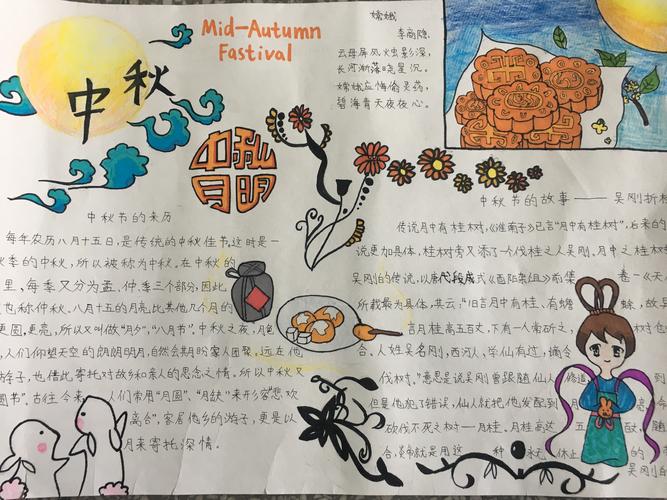 中秋
Mid-Autumn
Fastival
嫦娥
李商隐
云母屏风烛影深,
长河渐落晓星沉。
嫦娥应悔偷灵药,
碧海青天夜夜心。
中秋
月明
中秋节的来历
每年农历八月十五日,是传统的中秋佳节。这时是一
秋季的中秋,所以被称为中秋。在中秋的
里,每季又分为孟、仲、季三个部分,因此
也称仲秋。八月十五的月亮比其他几个月的
更圆,更亮,所以又叫做“月夕”,“八月节”。中秋之夜,月色
,人们仰望天空的朗朗明月,自然会期盼家人团聚。远在他
游子,也借此寄托对故乡和亲人的思念之情。所以中秋又
团节”。古往今来,人们常用“月圆”、“月缺”来形容“悲欢
离合”,客居他乡的游子,更是以
月来寄托深情。
中秋节的故事——吴刚折桂
传说月中有桂树,《淮南子》已言“月中有桂树”,后来的
说更加具体,桂树旁又添了一个伐桂之人吴刚。月中之桂树
吴刚的传说,以唐代段成式《酉阳杂俎》前集 卷一《天
所载最为具体,其云:“旧言月中有桂,有蟾蜍,故异
言月桂高五百丈,下有一人常斫之,树
合。人姓吴名刚,西河人,学仙有过,谪令
伐树。”意思是说吴刚曾跟随仙人修道,
但是他犯了错误,仙人就把他发配到月
砍伐不死之树——月桂。月桂高达五
合,
种
休止
吴刚的